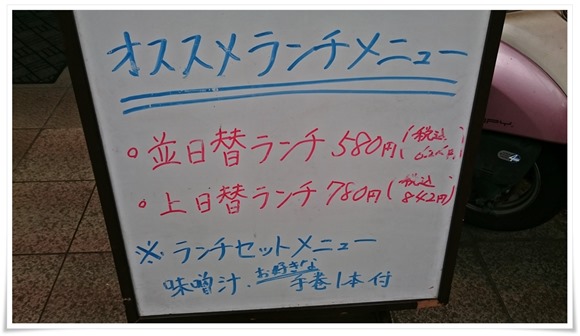 オススメランチメニュー
○並日替ランチ 580円(税込
○上日替ランチ 780円(税込 842円)
※ランチセットメニュー
味噌汁、お好きな手巻1本付